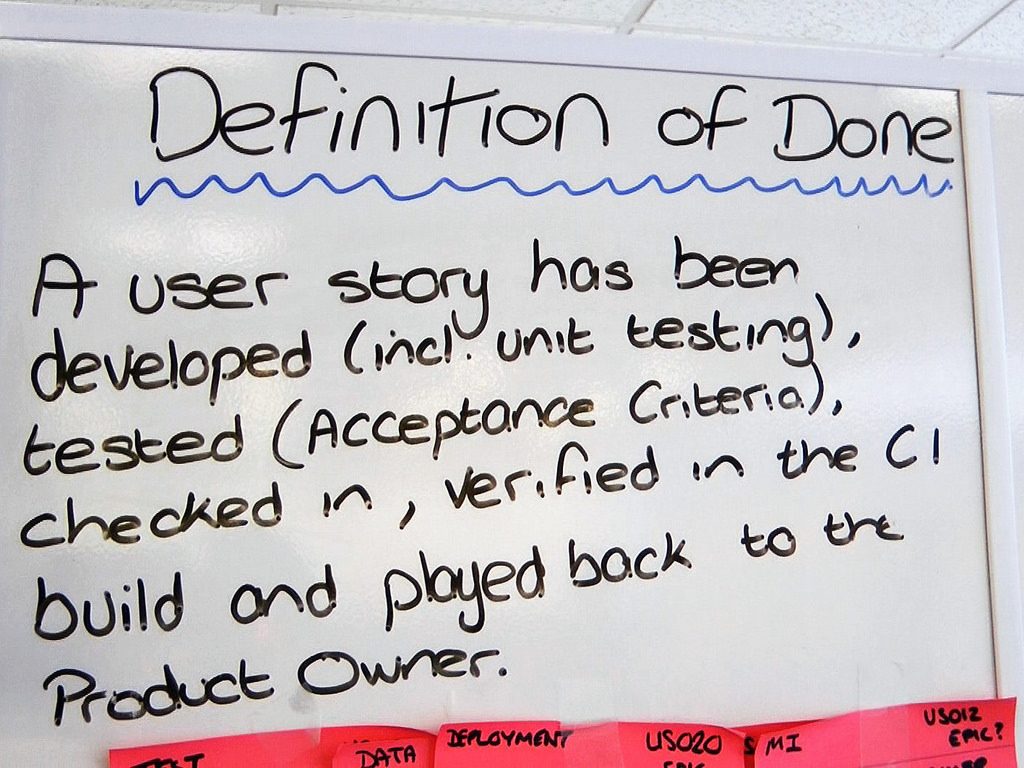 Definition of Done
A user story has been
developed (incl. unit testing),
tested (Acceptance Criteria),
checked in, verified in the CI
build and played back to the
Product Owner.
DATA
DEPLOYMENT
US020
EPIC
MI
US012
EPIC?